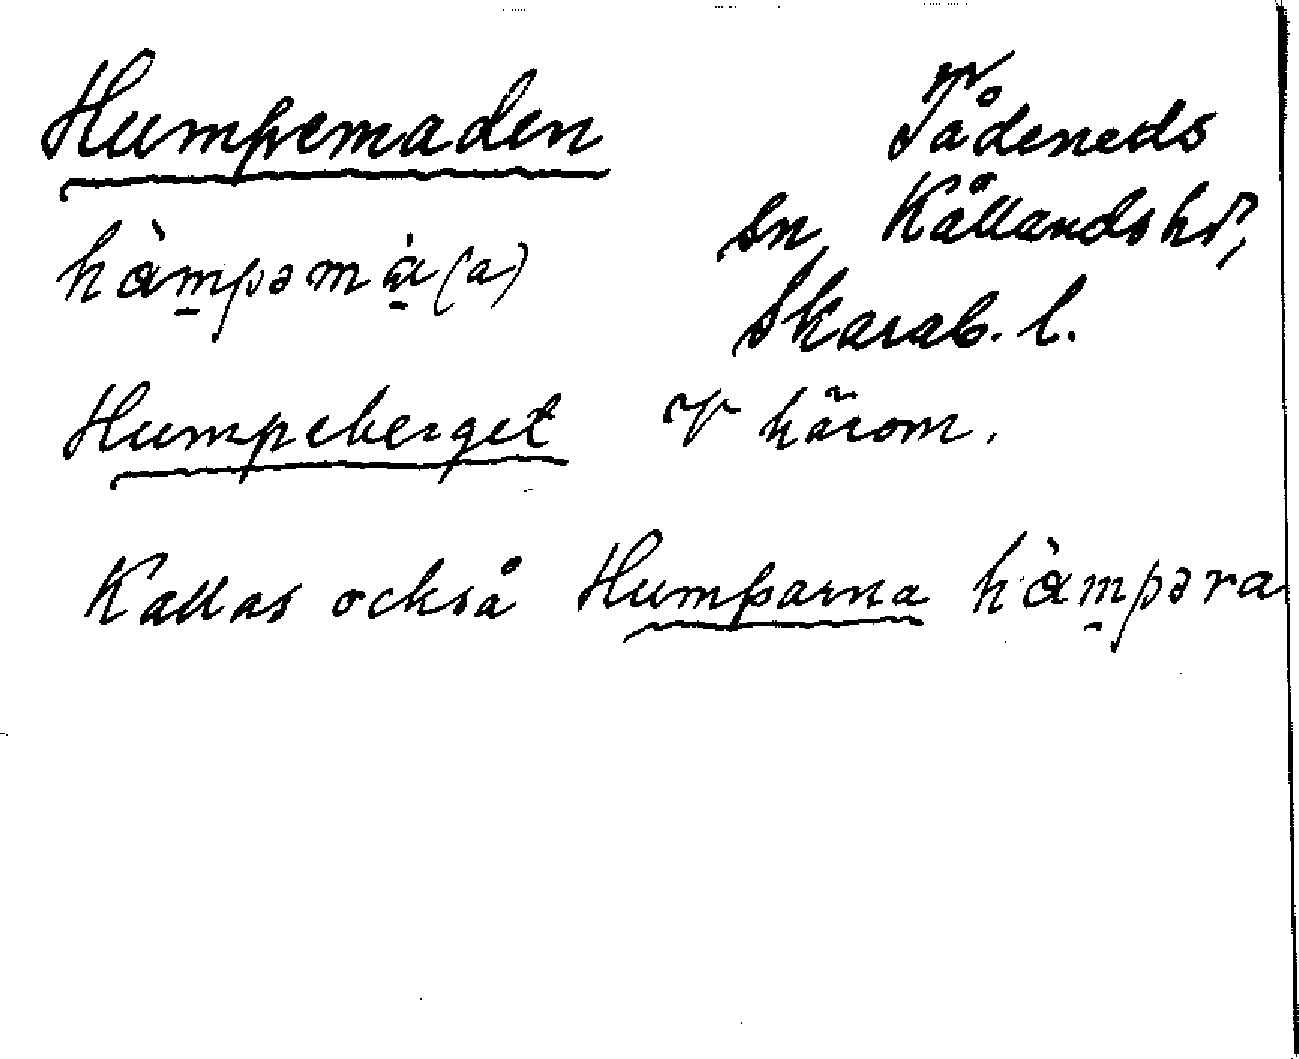 Humpemaden
Tådeneds
sn, Kållands hd,
hàmpəmà(a)
Skarab. l.
Humpeberget V härom.
Kallas också Humparna hàmpəra